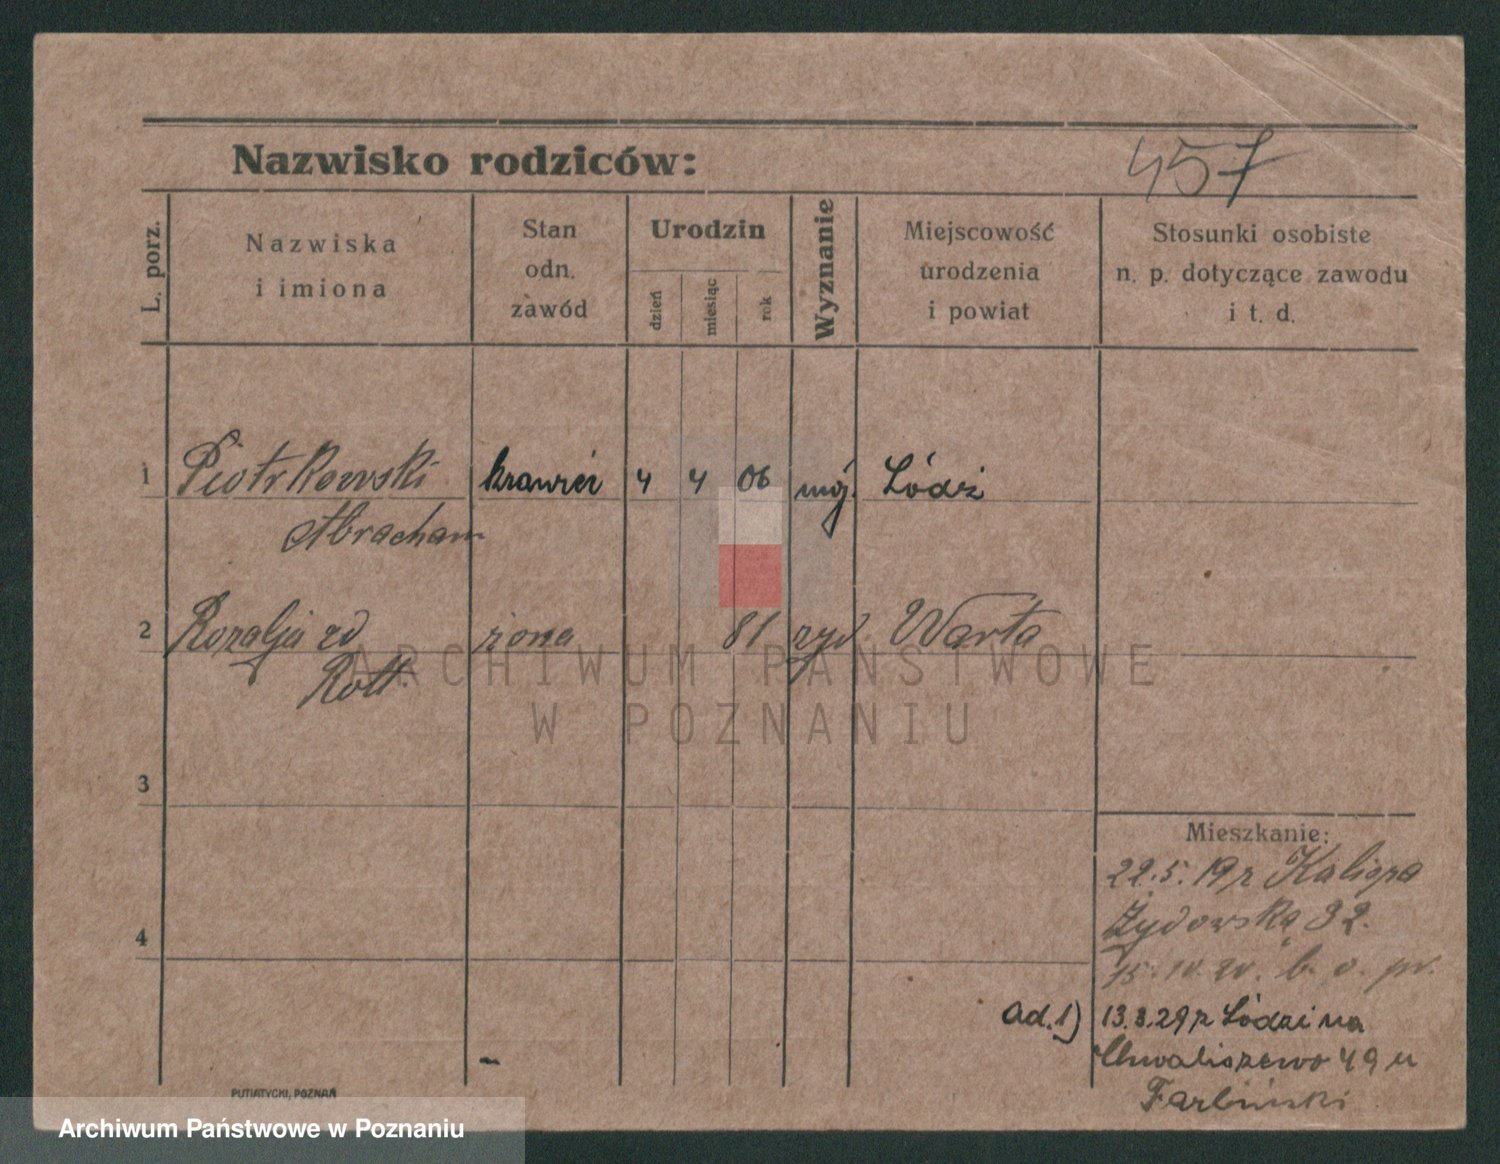 Nazwisko rodziców:
457
L. porz.
Nazwiska
i imiona
Stan
odn.
zawód
Urodzin
dzień
miesiąc
rok
Wyznanie
Miejscowość
urodzenia
i powiat
Stosunki osobiste
n. p. dotyczące zawodu
i t. d.
1 Piotrkowski krawiec 4 4 06 mój. Łódź
Abracham
2 Rozalja zd żona 81 żyd. Warta
Rott.
ARCHIWUM PAŃSTWOWE
W POZNANIU
3
4
Mieszkanie:
22.5.19 z Kalisza
Żydowska 32.
15.IV.20. b. o. pr.
ad.1) 13.3.29 z Łodzi na
Chwaliszewo 49 u
PUTIATYCKI, POZNAŃ
Archiwum Państwowe w Poznaniu